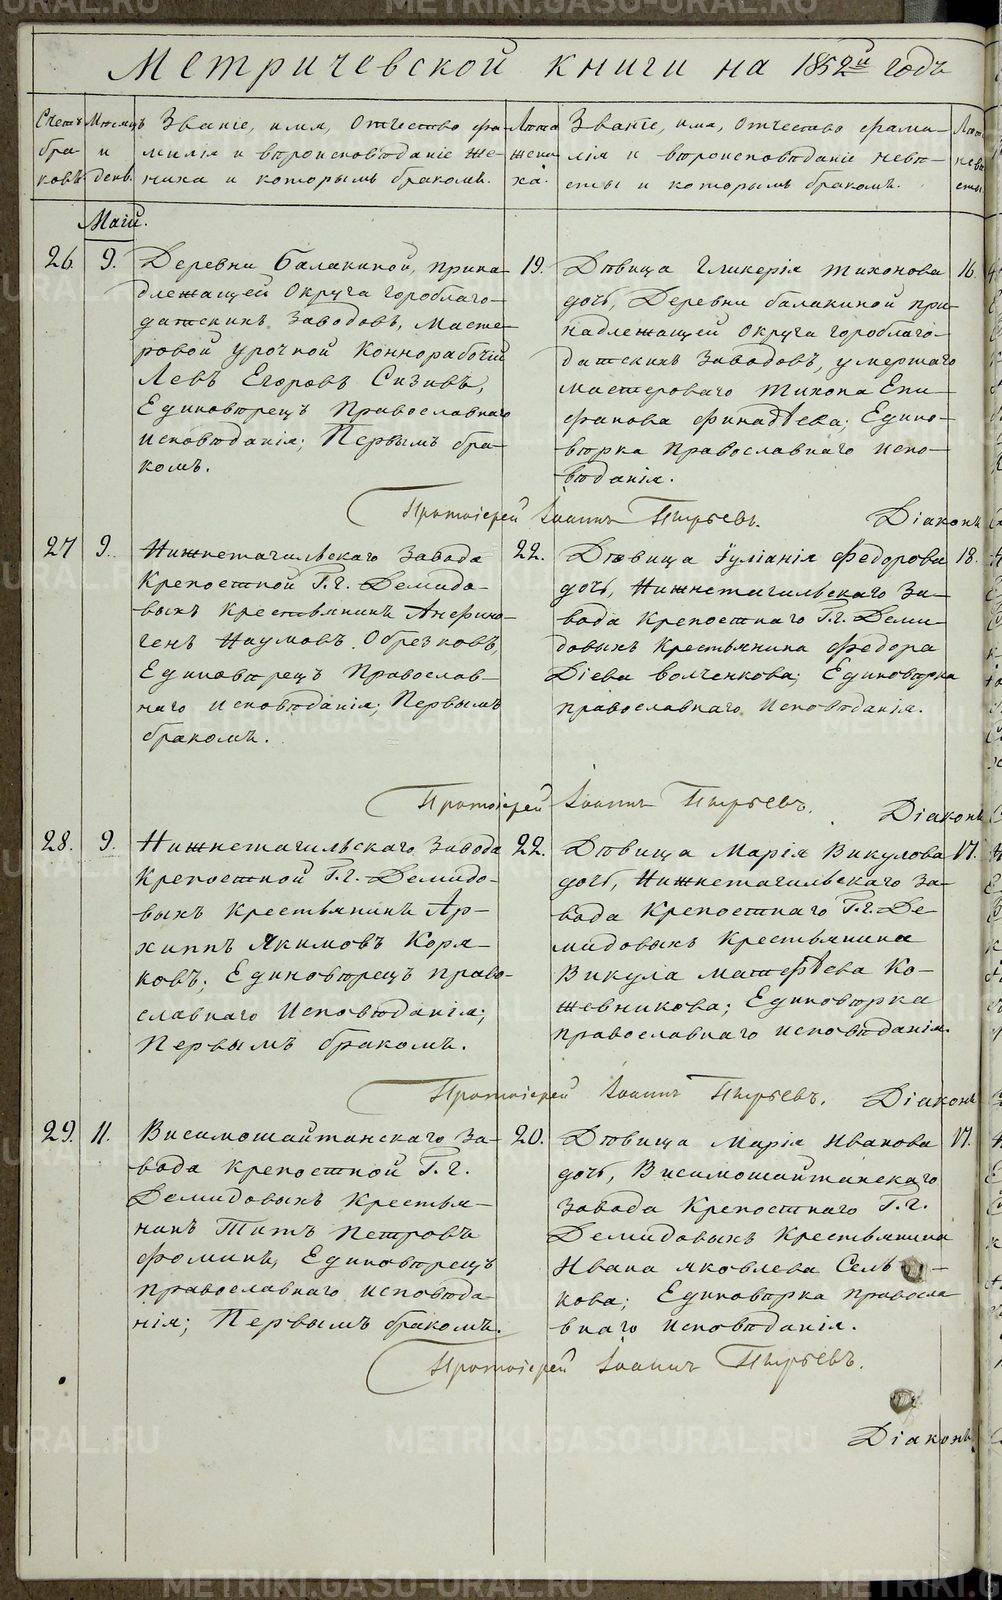 Метрической книги на 1852й годъ
Счетъ браковъ
Месяцъ и день.
Званіе, имя, Отчество фамилія и вѣроисповѣданіе жениха и которымъ бракомъ.
Лета жениха.
Званіе, имя, отчество фамилія и вѣроисповѣданіе невѣсты и которымъ бракомъ.
Лѣта невѣсты
Маій.
26. 9.
Деревни Балакиной, прина-
длежащей Округа гороблаго-
датскихъ Заводовъ, Масте-
ровой урочной Коннорабочій
Левъ Егоровъ Сизивъ,
Единовѣрецъ Православнаго
исповѣданія; Первымъ бра-
комъ.
19.
Дѣвица Гликерія тихонова
дочь, Деревни балакиной при-
надлежащей округа гороблаго-
датскихъ заводовъ, умершаго
мастероваго тихона Епи-
фанова Финадѣева; Едино-
вѣрка православнаго испо-
вѣданія.
16.
Протоіерей Іоаннъ Пырьевъ.
Діаконъ
27 9.
Нижнетагильскаго завода
Крепостной Г.г. Демидо-
выхъ Крестьянинъ Анфино-
генъ Наумовъ Обрезковъ,
Единовѣрецъ Православ-
наго исповѣданія; Первымъ
бракомъ.
22.
Дѣвица Іуліанія Федорова
дочь, Нижнетагильскаго За-
вода Крепостнаго Г.г. Деми-
довыхъ Крестьянина Федора
Діева волченкова; Единовѣрка
православнаго исповѣданія.
18.
Протоіерей Іоаннъ Пырьевъ.
Діаконъ
28. 9.
Нижнетагильскаго Завода
Крепостной Г.г. Демидо-
выхъ крестьянинъ Ар-
хиппъ Якимовъ Коря-
ковъ; Единовѣрецъ право-
славнаго Исповѣданія;
Первымъ бракомъ.
22.
Дѣвица Марія Викулова
дочь, Нижнетагильскаго За-
вода Крепостнаго Г.г. Де-
мидовыхъ Крестьянина
Викула матфѣева Ко-
жевникова; Единовѣрка
православнаго исповѣданія.
17.
Протоіерей Іоаннъ Пырьевъ.
Діаконъ
29. 11.
Висимошайтанскаго За-
вода крепостной Г.г.
Демидовыхъ Крестья-
нинъ Титъ Петровъ
Фоминъ, Единовѣрецъ
православнаго исповѣда-
нія; Первымъ бракомъ.
20.
Дѣвица Марія Иванова
дочь, Висимошайтанскаго
завода Крепостнаго Г.г.
Демидовыхъ Крестьянина
Ивана яковлева
кова; Единовѣрка правосла
внаго исповѣданія.
17.
Протоіерей Іоаннъ Пырьевъ.
Діаконъ
METRIKI.GASO-URAL.RU